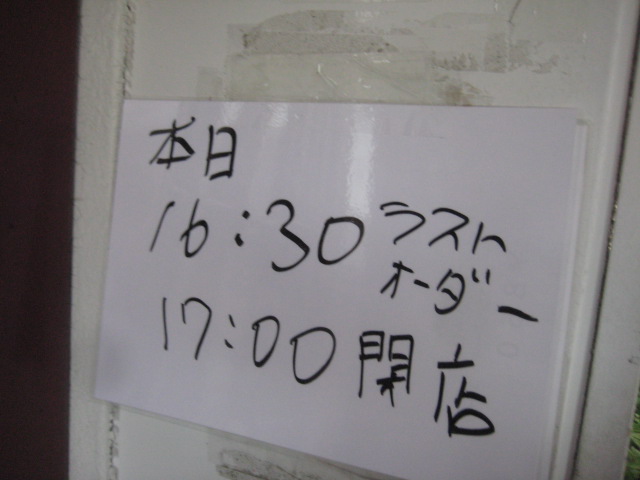 本日
16:30 ラスト
オーダー
17:00 閉店